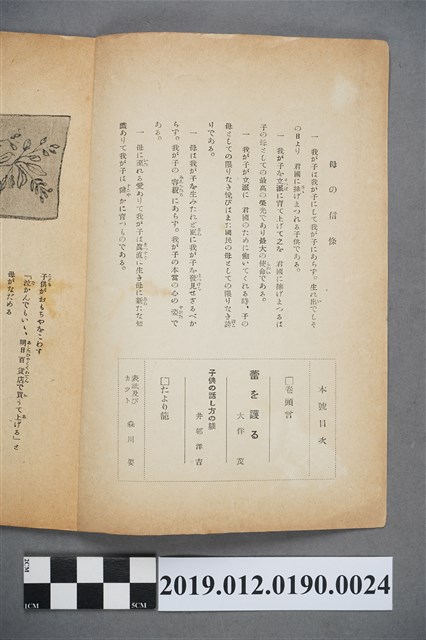 母の信條
一 我が子は我が子にして我が子にあらず。生れ出でしそ
の日より 君國に捧げまつれる子供である。
一 我が子を立派に育て上げて之を 君國に捧げまつるは
子の母としての最高の榮光であり最大の使命である。
一 我が子が立派に 君國のために働いてくれる時、子の
母としての限りなき悅びはまた國民の母としての限りなき誇
りである。
一 母は我が子を生みたれど更に我が子を發見せざるべか
らず。我が子の容貌にあらず。我が子の本當の心の姿で
ある。
一 母に溢れる愛ありて我が子は眞直に生き母に新たな知
識ありて我が子は健かに育つものである。
本號目次
□卷頭言
蕾を護る
大伴茂
子供の話し方の躾
□たより籠
表紙及び
カット
森田
子供がおもちやをこわす
「泣かんでもいい、明日百貨店で買うて上げる」と
母がなだめる
2CM
1CM
5CM
2019.012.0190.0024